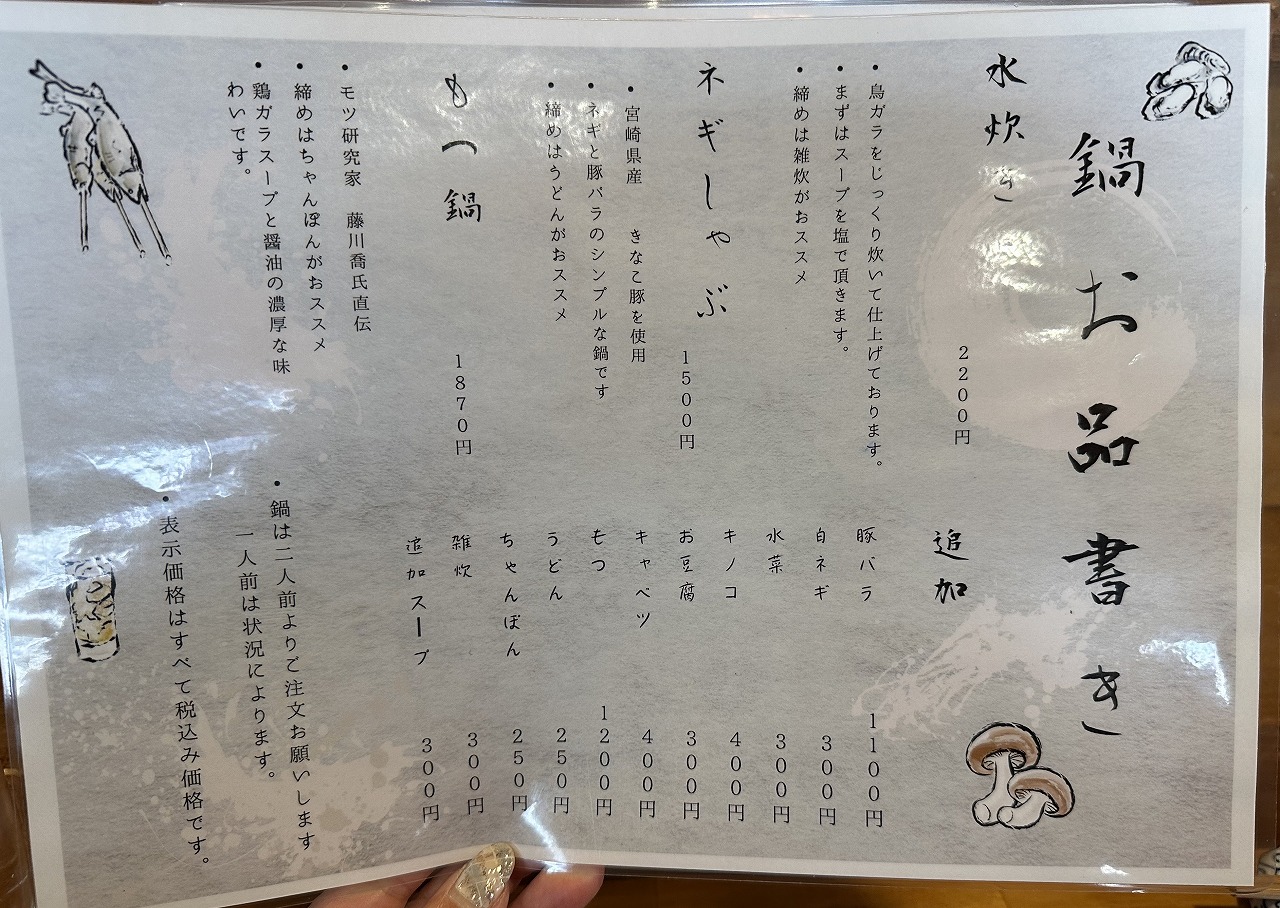 鍋お品書き
水炊き
2200円
・鳥ガラをじっくり炊いて仕上げております。
・まずはスープを塩で頂きます。
・締めは雑炊がおススメ
ネギしゃぶ
1500円
・宮崎県産 きなこ豚を使用
・ネギと豚バラのシンプルな鍋です
・締めはうどんがおススメ
もつ鍋
1870円
・モツ研究家 藤川喬氏直伝
・締めはちゃんぽんがおススメ
・鶏ガラスープと醤油の濃厚な味
わいです。
追加
豚バラ 1100円
白ネギ 300円
水菜 300円
キノコ 400円
お豆腐 300円
キャベツ 400円
もつ 1200円
うどん 250円
ちゃんぽん 250円
雑炊 300円
追加スープ 300円
・鍋は二人前よりご注文お願いします
一人前は状況によります。
・表示価格はすべて税込み価格です。